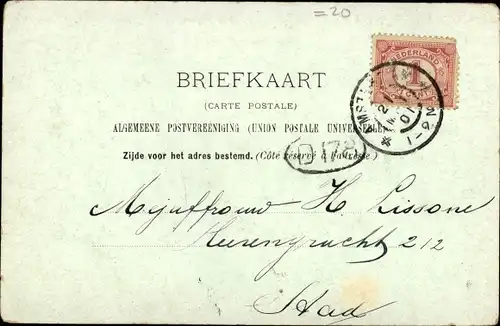 =20
NEDERLAND
1
CENT
BRIEFKAART
(CARTE POSTALE)
ALGEMEENE POSTVEREENIGING (UNION POSTALE UNIVERSELLE)
Zijde voor het adres bestemd. (Côté réservé à l'adresse)
D 172
Mejuffrouw H. Lissone
Heerengracht 212
Stad